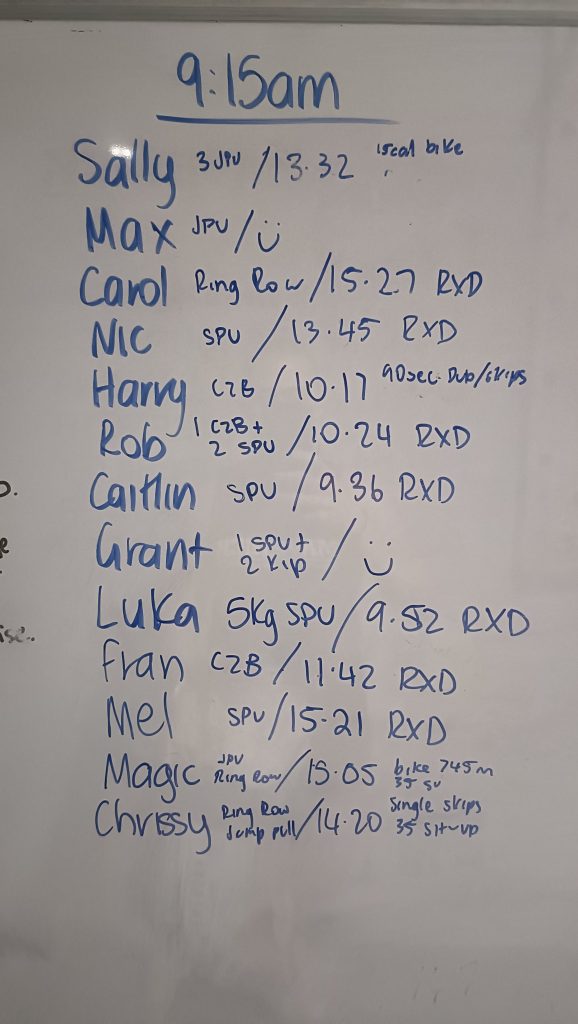 9:15am
Sally 3 JPU /13.32 15cal bike
Max JPU / :)
Carol Ring Row /15.27 RXD
Nic SPU /13.45 RXD
Harry C2B /10.17 90sec Dub/skips
Rob 1 C2B + 2 SPU /10.24 RXD
Caitlin SPU /9.36 RXD
Grant 1 SPU + 2 Kip / :)
Luka 5Kg SPU /9.52 RXD
Fran C2B /11.42 RXD
Mel SPU /15.21 RXD
Magic JPU Ring Row /15.05 bike 745m 35 SU
Chrissy Ring Row Jump pull /14.20 Single skips 35 Sit-up